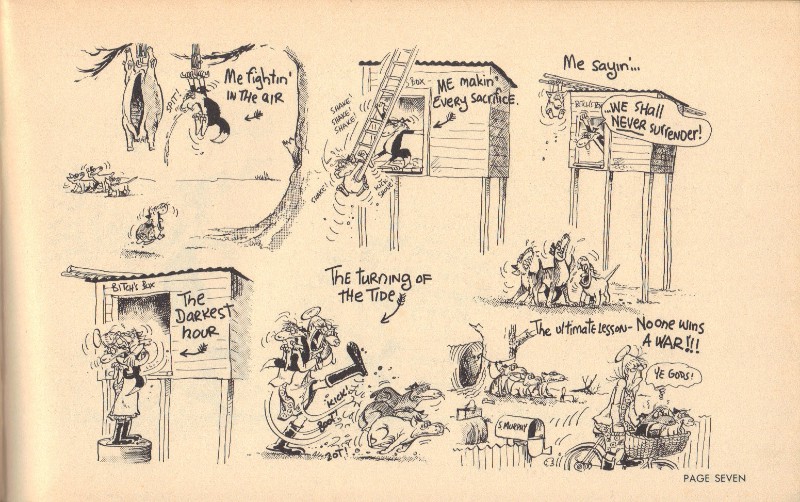 Me fightin'
IN THE aiR
SPIT!
SHAKE!
SHAKE!
SHAKE!
SHAKE!
Box
ME makin'
Every sacrifice.
Me sayin'...
Bitch's B
...WE SHall
NEVER SURRENDER!
Bitch's Box
The
DARKEST
HOUR
The turning of
the Tide
KICK!
BOOT
ZOT!
The ultimate lesson - No one wins
A WAR!!!
YE GODS!
S. MURPHY
PAGE SEVEN